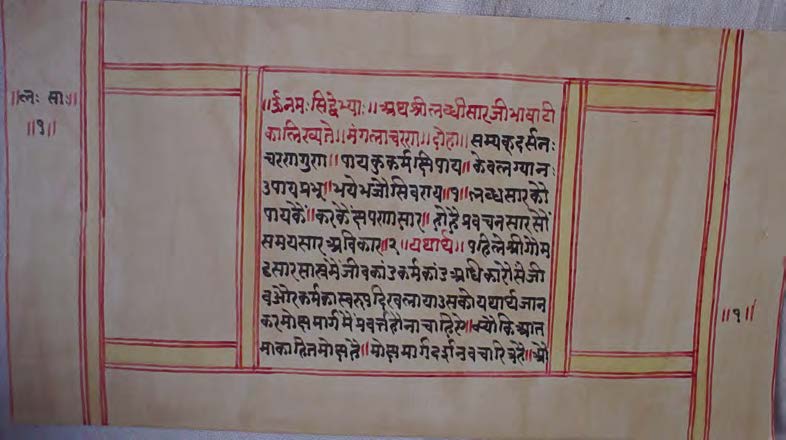 ॥लः साः॥
॥१॥
॥ॐनमः सिद्वेभ्याः॥अथश्रीलब्धीसारजीभाषाटी
कालिख्यते॥मंगलाचरण॥दोहा॥सम्यक्दर्सनः
चरणगुण॥पायकुकर्मक्षिपाय॥केवलग्यानः
उपायप्रभू॥भयेभजौसिवराय॥१॥लब्धसारकौ
पायकैं॥करकैंक्षपणासार॥होहैप्रवचनसारसौं
समयसारअविकार॥२॥यथार्थ॥पहिलेश्रीगोम
ट्टसारसास्त्रमैंजीवकांउकर्मकांउअधिकारोसैजी
वऔरकर्मकास्वरुपदिखलायाउसकोयथार्थजान
करमोक्षमार्गमैंप्रवर्त्तहौनाचाहिसे॥क्यौंकिआत
माकाहितमोक्षहै॥मोक्षमार्गदर्शनवचारित्रहै॥औ
॥१॥